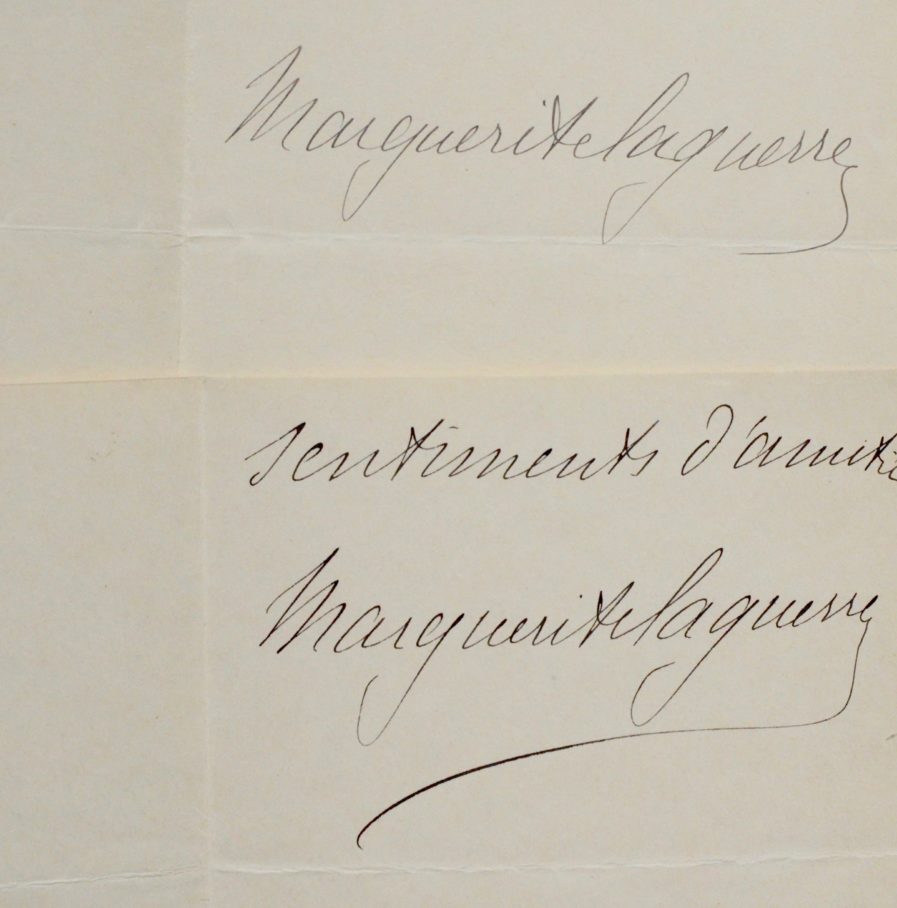 Marguerite Laguerre
sentiments d'amitié
Marguerite Laguerre